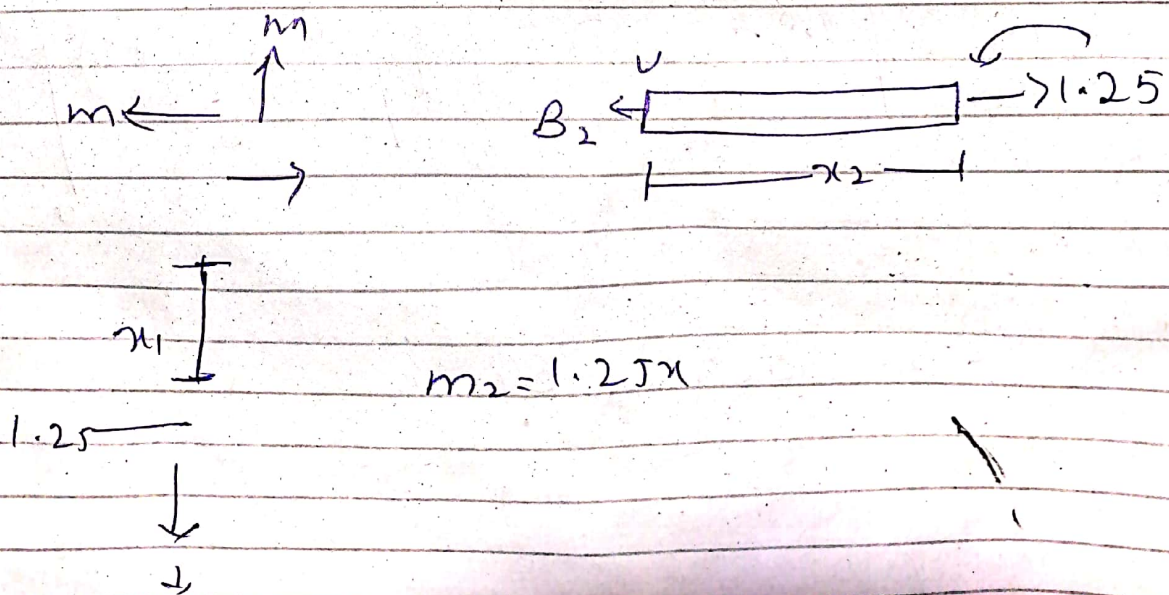 m
m
V
B2
1.25
x2
x1
m2 = 1.25x
1.25